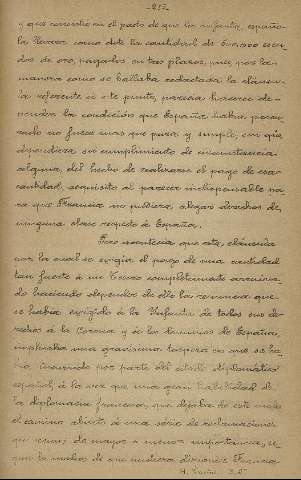 y que consistía en el pacto de que la infanta, españo-
la llevara como dote la cantidad de 500.000 escu-
dos de oro, pagados en tres plazos, pues, por la
manera como se hallaba redactada la cláusu-
la referente á este punto, parecía hacerse de-
pender la condición que España había procu-
rado no fuese mas que pura y simple, con que
dependiera su cumplimiento de circunstancia
alguna, del hecho de realizarse el pago de esa
cantidad, requisito al parecer indispensable pa-
ra que Francia no pudiera alegar derechos de
ninguna clase respecto á España.
Pero acontecía que esta cláusula
por la cual se exigía el pago de una cantidad
tan fuerte á un Tesoro completamente arruina-
do haciendo depender de ello la renuncia que
se había exigido á la Infanta de todos sus de-
rechos á la Corona y á los dominios de España,
implicaba una gravísima torpeza en que se ha-
bía incurrido por parte del citado diplomático
español, á la vez que una gran habilidad de
la diplomacia francesa, que dejaba de este modo
el camino abierto á una serie de reclamaciones
que serían de mayor ó menor importancia, se-
gún la medida de que pudiera disponer Francia